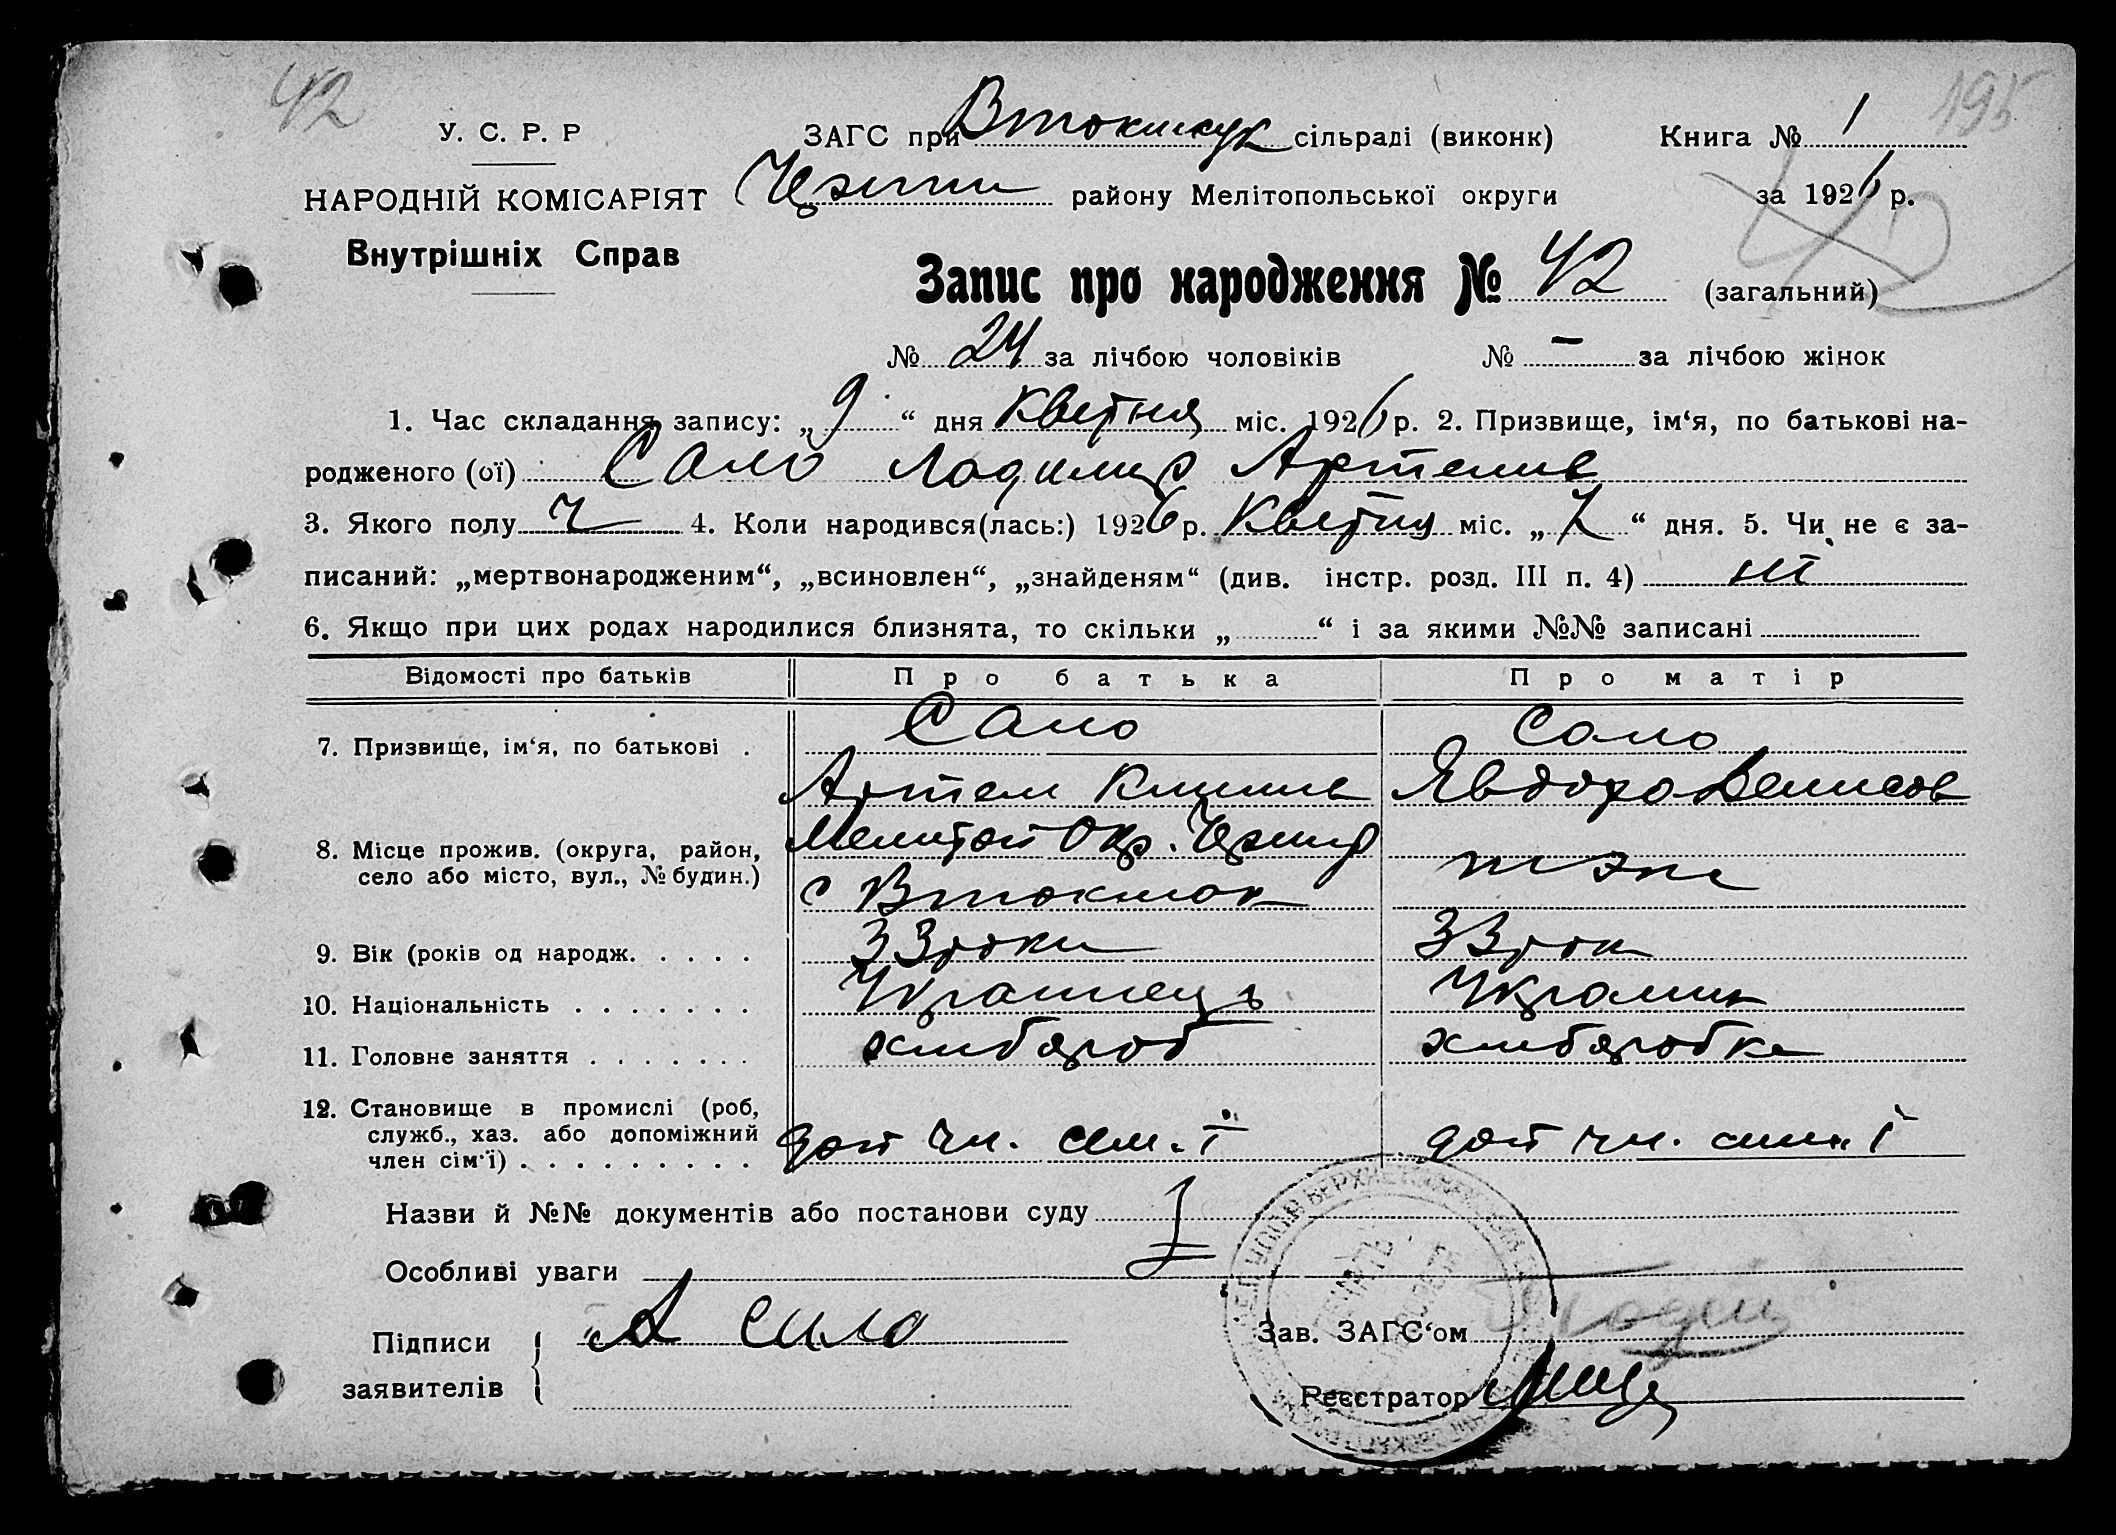 42
195
У. С. Р. Р
ЗАГС при Втокмкук сільраді (виконк)
Книга № 1
НАРОДНІЙ КОМІСАРІЯТ
району Мелітопольської округи
за 1926 р.
Внутрішніх Справ
42
Запис про народження № 42 (загальний)
№ 24 за лічбою чоловіків № – за лічбою жінок
1. Час складання запису: „ 9 “ дня Квітня міс. 1926 р. 2. Призвище, ім‘я, по батькові на-
родженого (ої) Сало Ладимир Артемив
3. Якого полу ч 4. Коли народився(лась:) 1926 р. Квітня міс. „ 7 “ дня. 5. Чи не є за-
писаний: „мертвонародженим“, „всиновлен“, „знайденям“ (див. інстр. розд. III п. 4) ні
6. Якщо при цих родах народилися близнята, то скільки „ “ і за якими №№ записані
Відомості про батьків Про батька Про матір
7. Призвище, ім‘я, по батькові . Сало Сало
Артем Климив Явдоха Денисов
8. Місце прожив. (округа, район, Мелитоп Окр.
село або місто, вул., № будин.) с Втокмак
9. Вік (років од народж. . . . . 33 роки 33 рок
10. Національність . . . . . . . Украинець Украинк
11. Головне заняття . . . . . . . хлибороб хлиборобка
12. Становище в промислі (роб,
служб., хаз. або допоміжний доп чл. сем.ї доп чл. сими ї
член сім‘ї) . . . . . . . . .
Назви й №№ документів або постанови суду
Особливі уваги
Підписи А Сало
заявителів
Зав. ЗАГС‘ом
Реєстратор